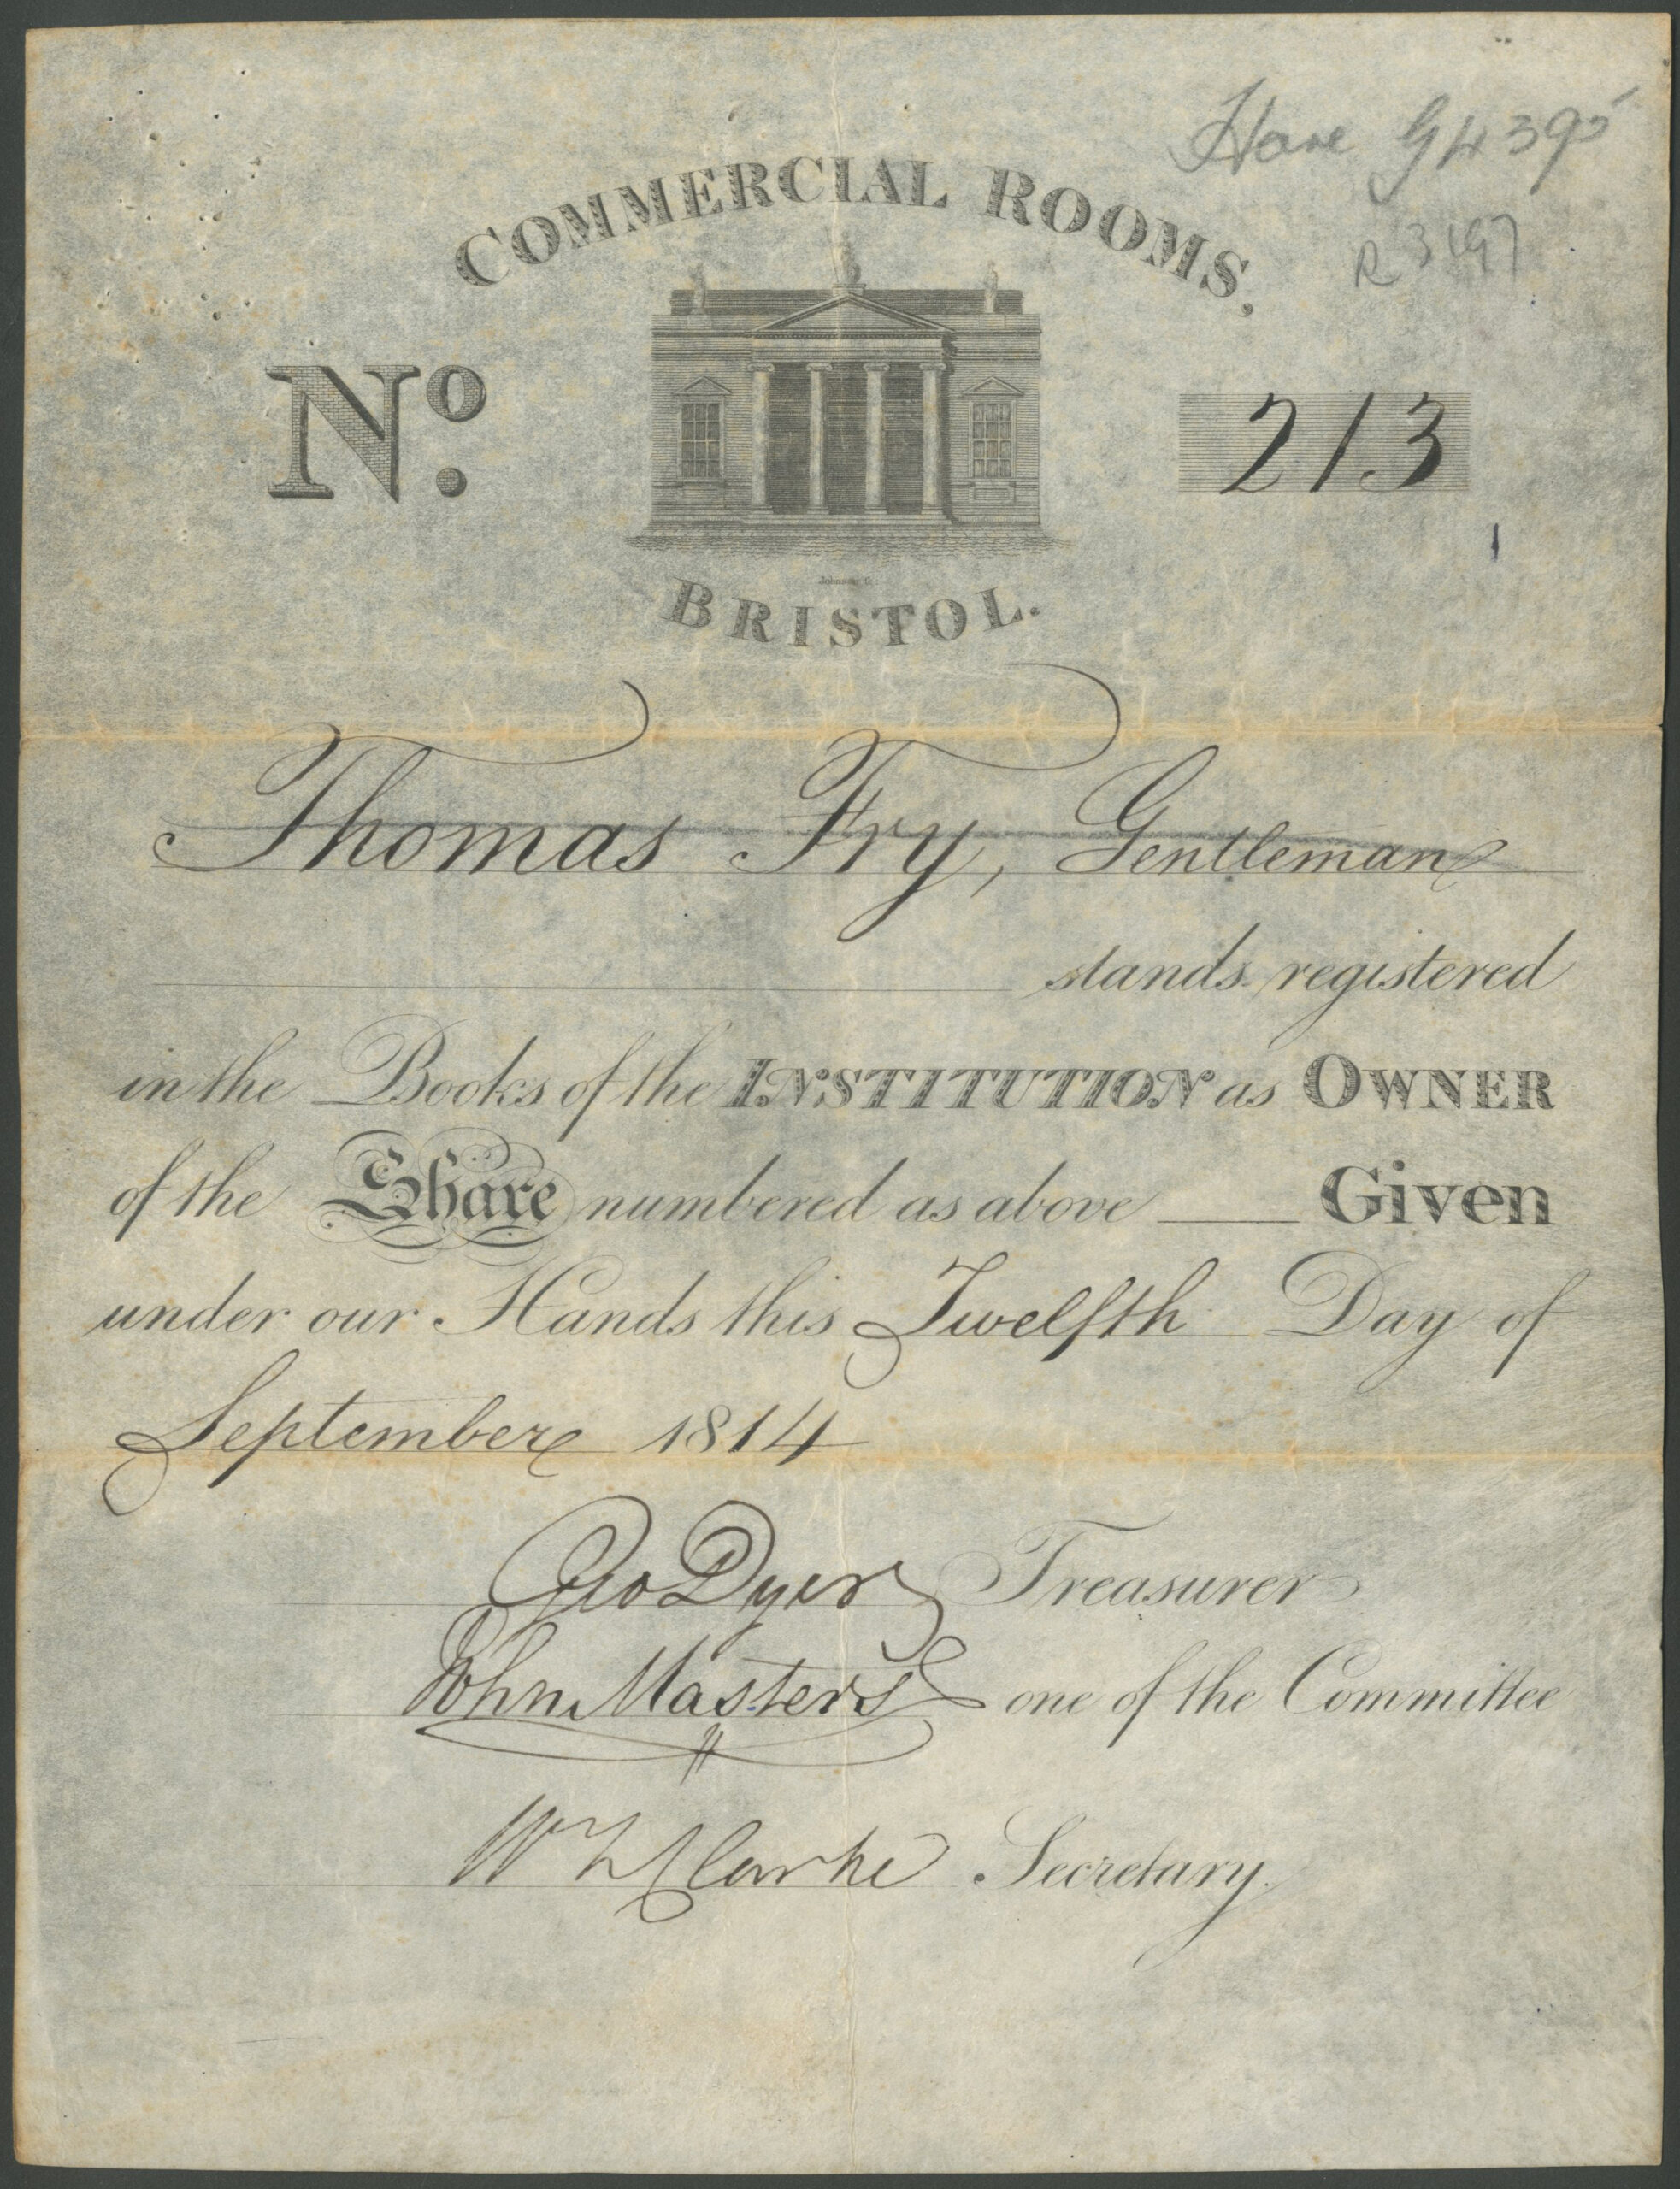 Have G4395
COMMERCIAL ROOMS,
R 3197
No. 213
BRISTOL.
Thomas Fry, Gentleman
stands registered
in the Books of the INSTITUTION as OWNER
of the Share numbered as above Given
under our Hands this Twelfth Day of
September 1814
Geo Dyer Treasurer
John Masters one of the Committee
Wm Clarke Secretary.